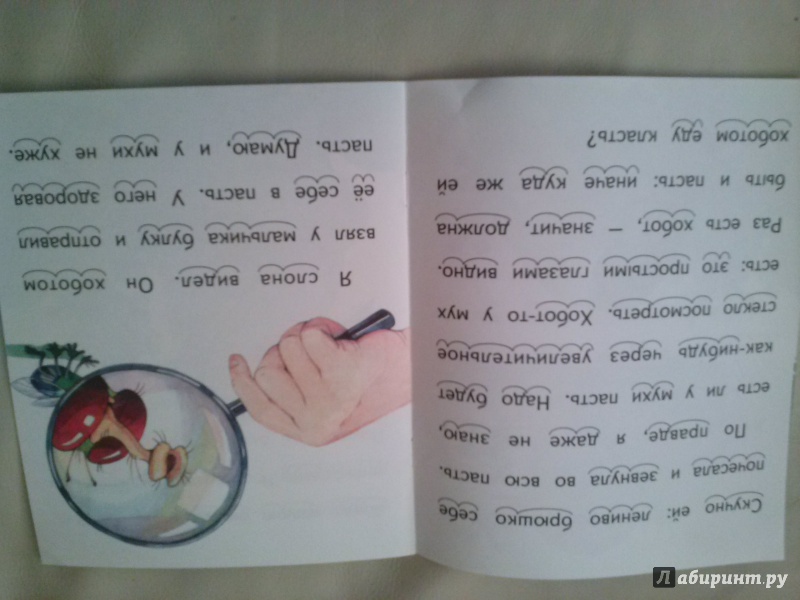 Скучно ей: лениво брюшко себе
почесала и зевнула во всю пасть.
По правде, я даже не знаю,
есть ли у мухи пасть. Надо будет
как-нибудь через увеличительное
стекло посмотреть. Хобот-то у мух
есть: это простыми глазами видно.
Раз есть хобот, — значит, должна
быть и пасть: иначе куда же ей
хоботом еду класть?
Я слона видел. Он хоботом
взял у мальчика булку и отправил
её себе в пасть. У него здоровая
пасть. Думаю, и у мухи не хуже.
Лабиринт.ру